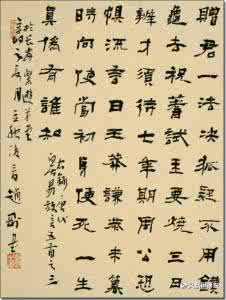 贈君一法决狐疑不用鑽
龜與祝蓍試玉要燒三日
滿辨才須待七年期周公恐
懼流言日王莽謙恭未篡
時向使當初身便死一生
真偽有誰知
右錄唐代
白居易放言五首之三
於長安